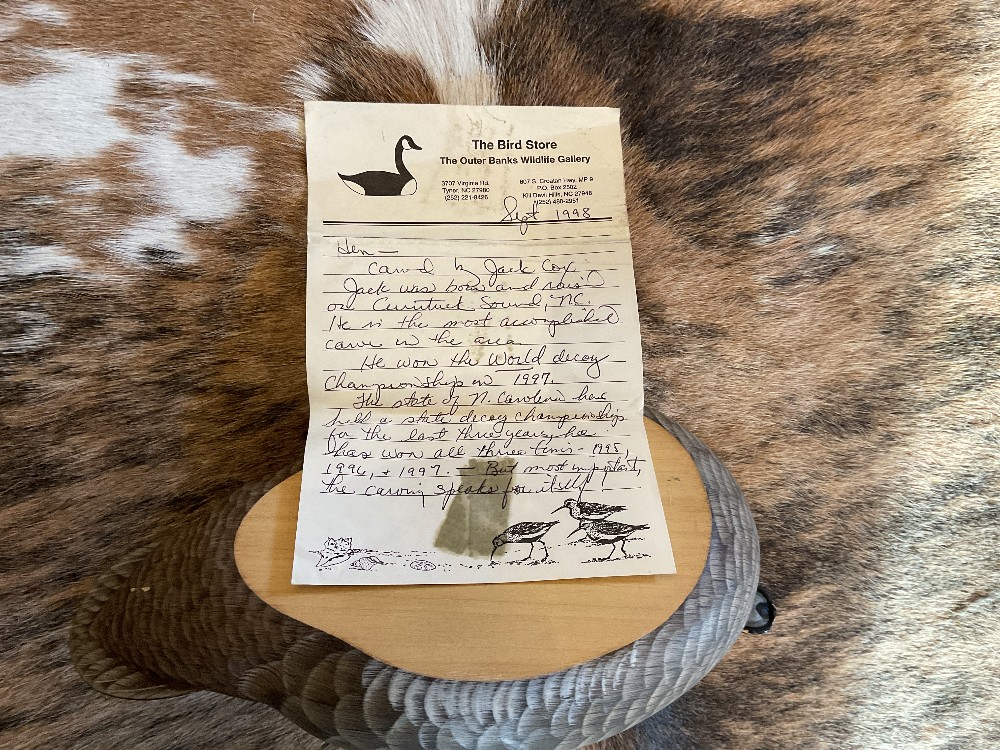 The Bird Store
The Outer Banks Wildlife Gallery
3707 Virginia Rd.
Tyner, NC 27980
(252) 221-8426
807 S. Croatan Hwy, MP 9
P.O. Box 2502
Kill Devil Hills, NC 27948
(252) 480-2951
Sept 1998
carved by Jack Cox
Jack was born and raised
on Currituck Sound, NC.
He is the most accomplished
carver in the area
He won the World decoy
Championship in 1997.
The state of N. Carolina have
held a state decoy championship
for the last three years, he
has won all three times - 1995,
1996, + 1997. — But most important,
the carving speaks for itself